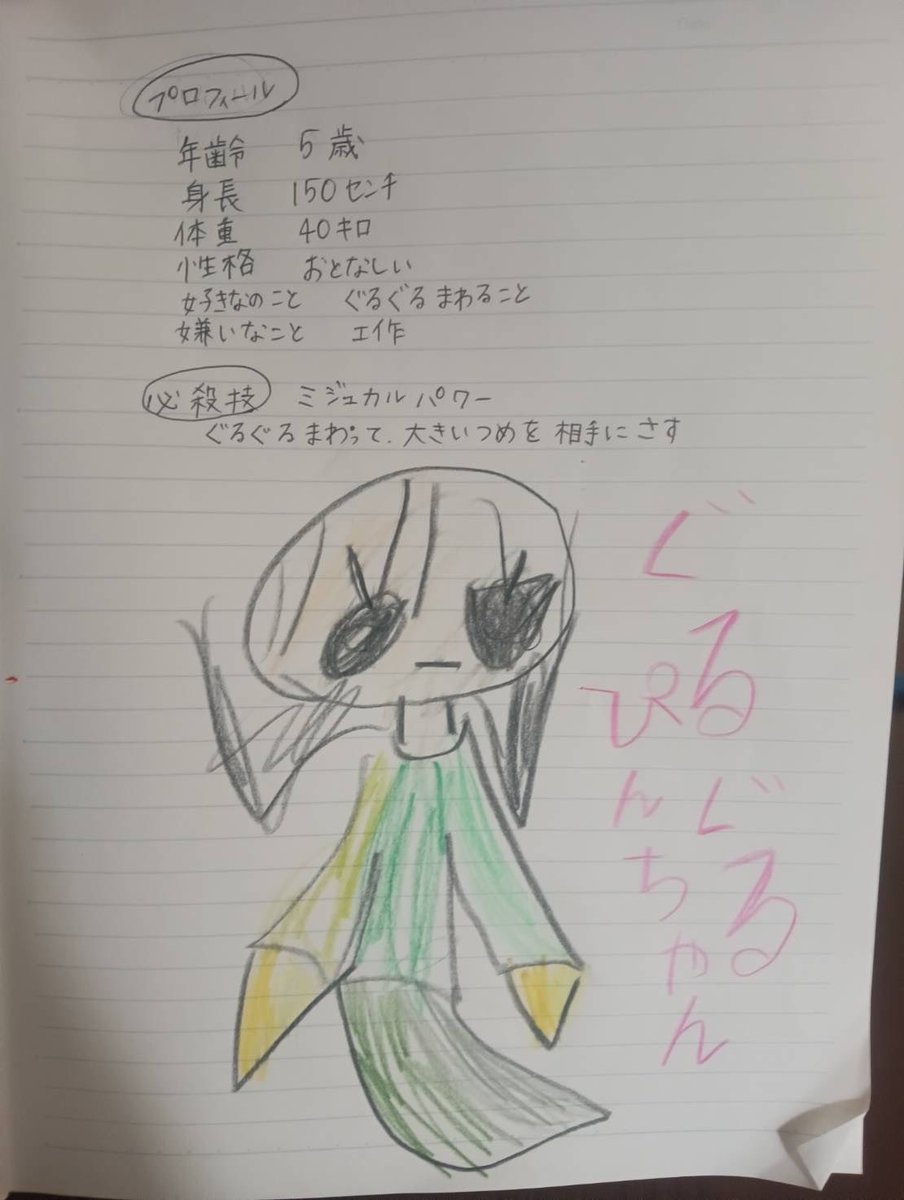 プロフィール
年齢 5歳
身長 150センチ
体重 40キロ
性格 おとなしい
好きなのこと ぐるぐるまわること
嫌いなこと 工作
必殺技 ミジュカルパワー
ぐるぐるまわって、大きいつめを相手にさす
ぐるぐる
ぴんちゃん